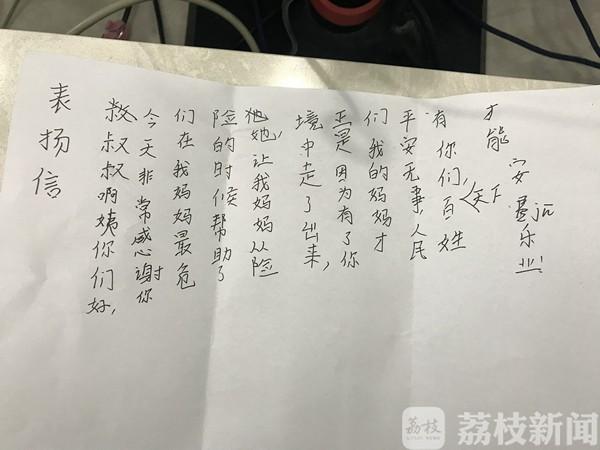 表扬信
叔叔啊姨你们好,
今天非常感谢你
们在我妈妈最危
险的时候帮助了
她,让我妈妈从险
境中走了出来,
正是因为有了你
们我的妈妈才
平安无事,人民
有你们,百姓
天下
才能安
乐业
荔枝
荔枝新闻